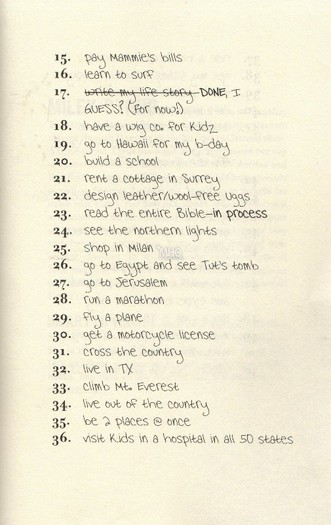 15. pay Mammie's bills
16. learn to surf
17. write my life story DONE, I
GUESS? (For now!)
18. have a wig co. for Kidz
19. go to Hawaii for my b-day
20. build a school
21. rent a cottage in Surrey
22. design leather/wool-free uggs
23. read the entire Bible—in process
24. see the northern lights
25. shop in Milan
26. go to Egypt and see Tut's tomb
27. go to Jerusalem
28. run a marathon
29. fly a plane
30. get a motorcycle license
31. cross the country
32. live in TX
33. climb Mt. Everest
34. live out of the country
35. be 2 places @ once
36. visit Kids in a hospital in all 50 states